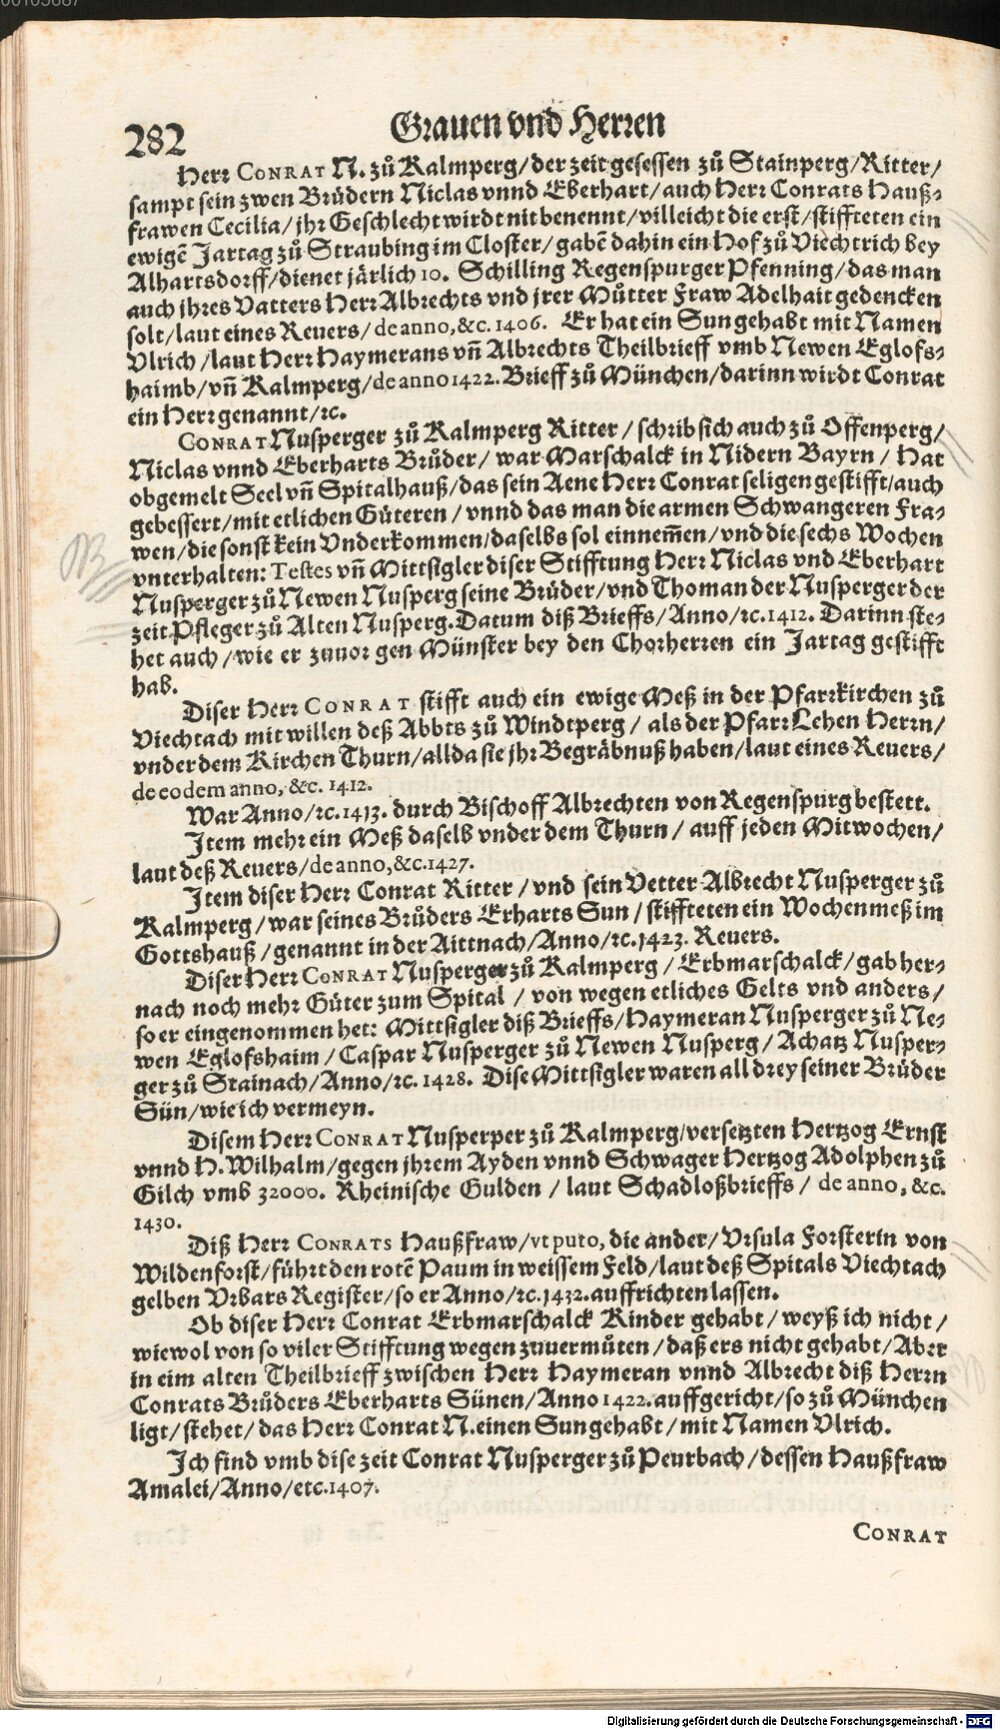 282
Grauen vnd Herren
Herr CONRAT N. zů Kalmperg/der zeit gesessen zů Stainperg/Ritter/
sampt sein zwen Brüdern Niclas vnnd Eberhart/auch Herr Conrats Hauß-
frawen Cecilia/jhr Geschlecht wirdt nit benennt/villeicht die erst/stiffteten ein
ewigẽ Jartag zů Straubing im Closter/gabẽ dahin ein Hof zů Viechtrich bey
Alhartsdorff/dienet järlich 10. Schilling Regenspurger Pfenning/das man
auch jhres Vatters Herr Albrechts vnd jrer Můtter Fraw Adelhait gedencken
solt/laut eines Reuers/de anno,&c. 1406. Er hat ein Sun gehabt mit Namen
Vlrich/laut Herr Haymerans vñ Albrechts Theilbrieff vmb Newen Eglofs-
haimb/vñ Kalmperg/de anno 1422. Brieff zů München/darinn wirdt Conrat
ein Herr genannt/ꝛc.
CONRAT Nusperger zů Kalmperg Ritter/schrib sich auch zů Offenperg/
Niclas vnnd Eberharts Brůder/war Marschalck in Nidern Bayrn/Hat
obgemelt Seel vñ Spitalhauß/das sein Aene Herr Conrat seligen gestifft/auch
gebessert/mit etlichen Güteren/vnnd das man die armen Schwangeren Fra-
wen/die sonst kein Vnderkommen/daselbs sol einnem̃en/vnd die sechs Wochen
vnterhalten: Testes vñ Mittsigler diser Stifftung Herr Niclas vnd Eberhart
Nusperger zů Newen Nusperg seine Brüder/vnd Thoman der Nusperger der
zeit Pfleger zů Alten Nusperg. Datum diß Brieffs/Anno/ꝛc. 1412. Darinn ste-
het auch/wie er zuuor gen Münster bey den Chorherren ein Jartag gestifft
hab.
Diser Herr CONRAT stifft auch ein ewige Meß in der Pfarrkirchen zů
Viechtach mit willen deß Abbts zů Windtperg/als der Pfarr Lehen Herrn/
vnder dem Kirchen Thurn/allda sie jhr Begräbnuß haben/laut eines Reuers/
de eodem anno, &c. 1412.
War Anno/ꝛc. 1413. durch Bischoff Albrechten von Regenspurg bestett.
Item mehr ein Meß daselb vnder dem Thurn/auff jeden Mitwochen/
laut deß Reuers/de anno,&c. 1427.
Item diser Herr Conrat Ritter/vnd sein Vetter Albrecht Nusperger zů
Kalmperg/war seines Brůders Erharts Sun/stiffteten ein Wochenmeß im
Gottshauß/genannt in der Aittnach/Anno/ꝛc. 1423. Reuers.
Diser Herr CONRAT Nusperger zů Kalmperg/Erbmarschalck/gab her-
nach noch mehr Güter zum Spital/von wegen etliches Gelts vnd anders/
so er eingenommen het: Mittsigler diß Brieffs/Haymeran Nusperger zů Ne-
wen Eglofshaim/Caspar Nusperger zů Newen Nusperg/Achatz Nusper-
ger zů Stainach/Anno/ꝛc. 1428. Dise Mittsigler waren all drey seiner Brüder
Sün/wie ich vermeyn.
Disem Herr CONRAT Nusperper zů Kalmperg/versetzten Hertzog Ernst
vnnd H. Wilhalm/gegen jhrem Ayden vnnd Schwager Hertzog Adolphen zů
Gilch vmb 32000. Rheinische Gulden/laut Schadloßbrieffs/de anno, &c.
1430.
Diß Herr CONRATS Haußfraw/vt puto, die ander/Vrsula Forsterin von
Wildenforst/führt den rotẽ Paum in weissem Feld/laut deß Spitals Viechtach
gelben Vrbars Register/so er Anno/ꝛc. 1432. auffrichten lassen.
Ob diser Herr Conrat Erbmarschalck Kinder gehabt/weyß ich nicht/
wiewol von so viler Stifftung wegen zuuermůten/daß ers nicht gehabt/Aber
in eim alten Theilbrieff zwischen Herr Haymeran vnnd Albrecht diß Herrn
Conrats Brůders Eberharts Sünen/Anno 1422. auffgericht/so zů München
ligt/stehet/das Herr Conrat N. einen Sun gehabt/mit Namen Vlrich.
Ich find vmb dise zeit Conrat Nusperger zů Peurbach/dessen Haußfraw
Amalei/Anno/etc. 1407.
CONRAT
Digitalisierung gefördert durch die Deutsche Forschungsgemeinschaft - DFG